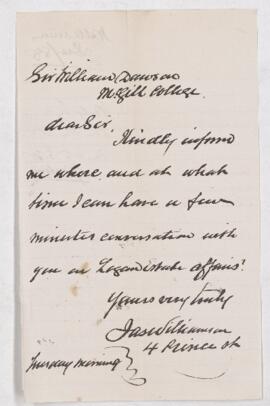 Sir William Dawson
McGill College.
dear Sir.
Kindly inform
me where and at what
time I can have a few
minutes conversation with
you on Logan Estate affairs?
Yours very truly
Jas Williamson
4 Prince st
Tuesday morning